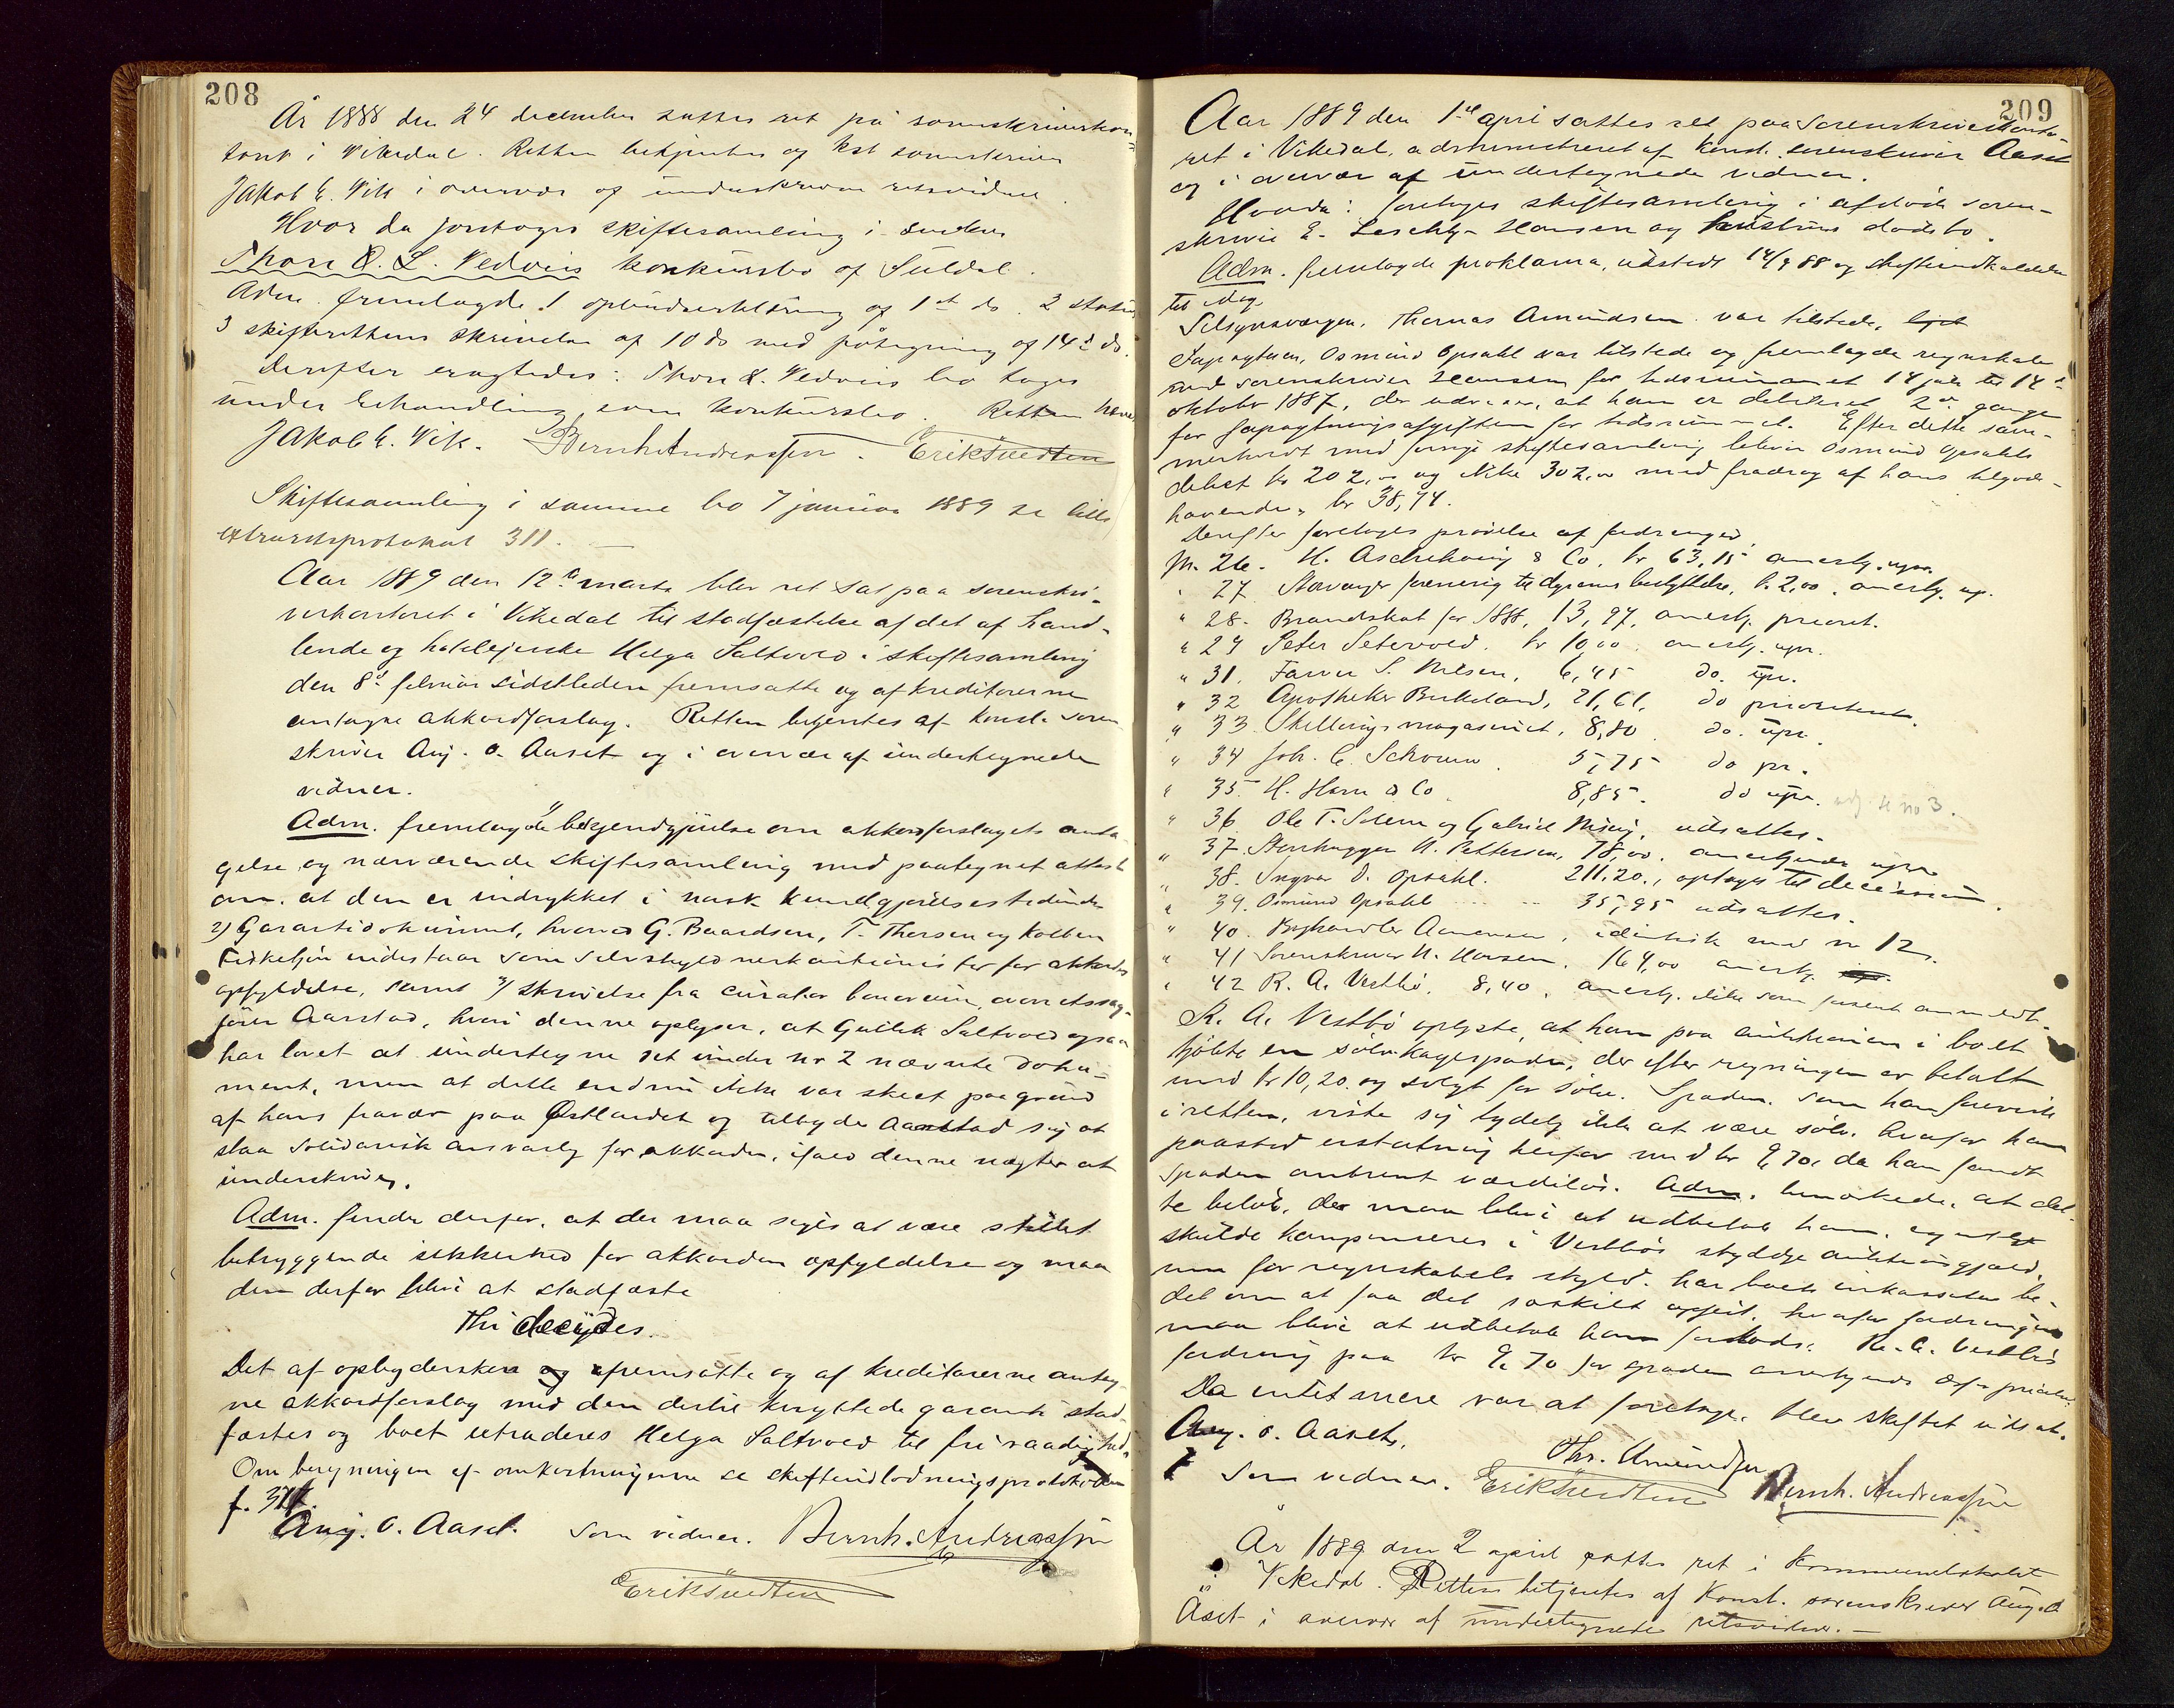 208
År 1888 den 24 december sattes ret på sorenskriverkon-
toret i Vikedal. Retten betjentes af kst sorenskriver
Jakob E. Vik i overvær af underskrevne retsvidner.
Hvor da foretoges skiftesamling i anden
Thore O. L. Vedvies konkursbo af Suldal.
Adm. fremlagde 1 opbudserklæring af 1st ds. 2 status
3 skifterettens skrivelse af 10 ds med påtegning af 14d ds.
Derefter eragtedes: Thore O. Vedvies bo tages
under behandling som konkursbo. Retten hævet
Jakob E. Vik. Bernh Andreassen. Erik Tuedten
Skiftesamling i samme bo 7 januar 1889 se lille
extraretsprotokol 311.
Aar 1889 den 12te marts blev ret sat paa sorenskri-
verkontoret i Vikedal til stadfæstelse af det af hand-
lende og hotelejerske Helga Saltvold i skiftesamling
den 8de februar sidstleden fremsatte og af kreditorerne
antagne akkordforslag. Retten betjentes af konst. soren-
skriver Aug. O. Aaset og i overvær af undertegnede
vidner.
Adm. fremlagde 1) bekjendtgjørelse om akkordforslagets anta-
gelse og nærværende skiftesamling med paategnet attest
om, at den er indrykket i norsk kundgjørelsestidende
2) Garantidokument, hvorved G. Baardsen, T. Thorsen og Kolben
indestaar som selvskyldnerkautionister for akkordens
opfyldelse, samt 3/ skrivelse fra curator bonorum, overretssag-
fører Aarstad, hvori denne oplyser, at Gullik Saltvold ogsaa
har lovet at undertegne det under nr 2 nævnte doku-
ment, men at dette endnu ikke var skeet paa grund
af hans fravær paa Østlandet og tilbyde Aarstad sig at
staa solidarisk ansvarlig for akkorden, ifald denne nægter at
underskrive.
Adm. finder derfor, at der maa siges at være stillet
betryggende sikkerhed for akkordens opfyldelse og maa
den derfor blive at stadfæste
Thi decideres.
Det af opbydersken fremsatte og af kreditorerne antag-
ne akkordforslag med den dertil knyttede garanti stad-
fæstes og boet extraderes Helga Saltvold til fri raadighed.
Om beregningen af omkostningerne se skifteudlodningsprotokollen
f. 377.
Aug. O. Aaset. Som vidner. Bernh. Andreassen
Erik Tuedten
209
Aar 1889 den 1ste april sattes ret paa sorenskriverkonto-
ret i Vikedal, administreret af konst. sorenskriver Aaset
og i overvær af undertegnede vidner.
Hvorda: foretoges skiftesamling i afdøde soren-
skriver E. Hansen og hustrus dødsbo.
Adm. fremlagde proklama, udstedt 14/9 88 og skifteindkaldelse
til idag
Thomas Amundsen var tilstede,
Osmund Opsahl var tilstede og fremlagde regnskab
med sorenskriver Hansen for tidsrummet 14 juli til 14de
oktober 1887, der udviser, at han er debiteret 2de gange
for forpagtningsafgiften for tidsrummet. Efter dette sam-
menholdt med forrige skiftesamling bliver Osmund Opsahls
debet kr 202,00 og ikke 302,00 med fradrag af hans tilgode-
havende, kr 38,74.
Derefter foretoges prøvelse af fordringer,
Nr. 26. H. Aschehoug & Co, kr 63,15 anerkj. upr.
" 27 Stavanger forening til dyrenes beskyttelse, k. 2,00. anerkj. up.
" 28. Brandskat for 1888, 13,97, anerkj. prioret.
" 29 Peter Setervold. kr 10,00. anerkj. upr.
" 31. Farver S. Nilsen, 6,45 do. upr.
" 32 Apotheker Birkeland, 21,61, do prioriteret.
" 33 Skillingsmagasinet, 8,80. do. upr.
" 34 Joh. C. Schrum. 5,75 do pr.
" 35 H. Horn & Co. 8,85. do upr. se no 3.
" 36 Ole T. Solem og Gabriel, udsattes.
" 37. Stenhugger N. Pettersen, 78,00. anerkjendes upr.
" 38. Ingvar O. Opsahl. 211.20., optages til decision.
" 39. Osmund Opsahl 35,95 udsattes.
" 40. Boghandler Aamensen, identisk med nr 12.
" 41 Sorenskriver N. Hansen. 164,00 anerkj.
" 42 R. A. Vestbø. 8,40, anerkj. ikke som forsent anmeldt.
R. A. Vestbø oplyste, at han paa auktionen i boet
kjøbte en sølvkagespade, der efter regningen er betalt
med kr 10,20 og solgt for sølv. Spaden, som han foreviste
i retten, viste sig tydelig ikke at være sølv, hvorfor han
paastod erstatning herfor med kr 9,70, da han fandt
spaden omtrent værdiløs. Adm. bemærkede, at det-
te beløb, der maa blive at udbetale ham, egentlig
skulde kompenseres i Vestbøs skyldige auktionsgjæld,
men for regnskabets skyld har boets inkassator be-
det om at faa det særskilt opført, hvorfor fordringen
maa blive at udbetale ham forlods. R. A. Vestbøs
fordring paa kr 9,70 for spaden anerkjendes
Da intet mere var at foretage, blev skiftet udsat.
Aug. O. Aaset.
Ths. Amundsen
Som vidner. Erik Tuedten Bernh. Andreassen
År 1889 den 2 april sattes ret i kommunelokalet
i Vikedal. Retten betjentes af konst. sorenskriver Aug. O
Åset i overvær af undertegnede retsvidner. —